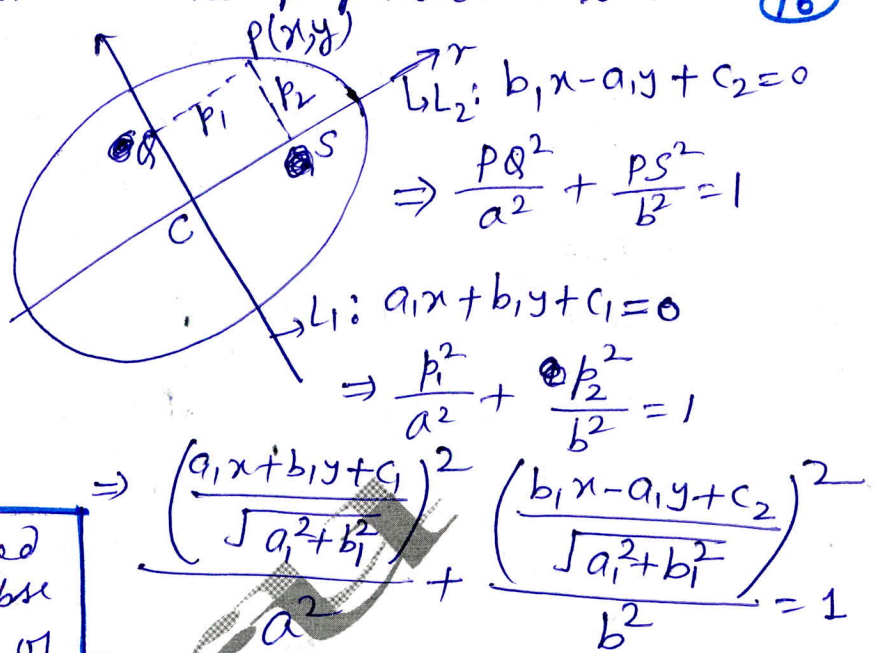 16
P(x,y)
r
L₂: b₁x-a₁y+c₂=0
p₁
p₂
Q
S
⇒ PQ²/a² + PS²/b² = 1
C
L₁: a₁x+b₁y+c₁=0
⇒ p₁²/a² + p₂²/b² = 1
⇒ ((a₁x+b₁y+c₁)/√(a₁²+b₁²))²/a² + ((b₁x-a₁y+c₂)/√(a₁²+b₁²))²/b² = 1
ed
bse
or